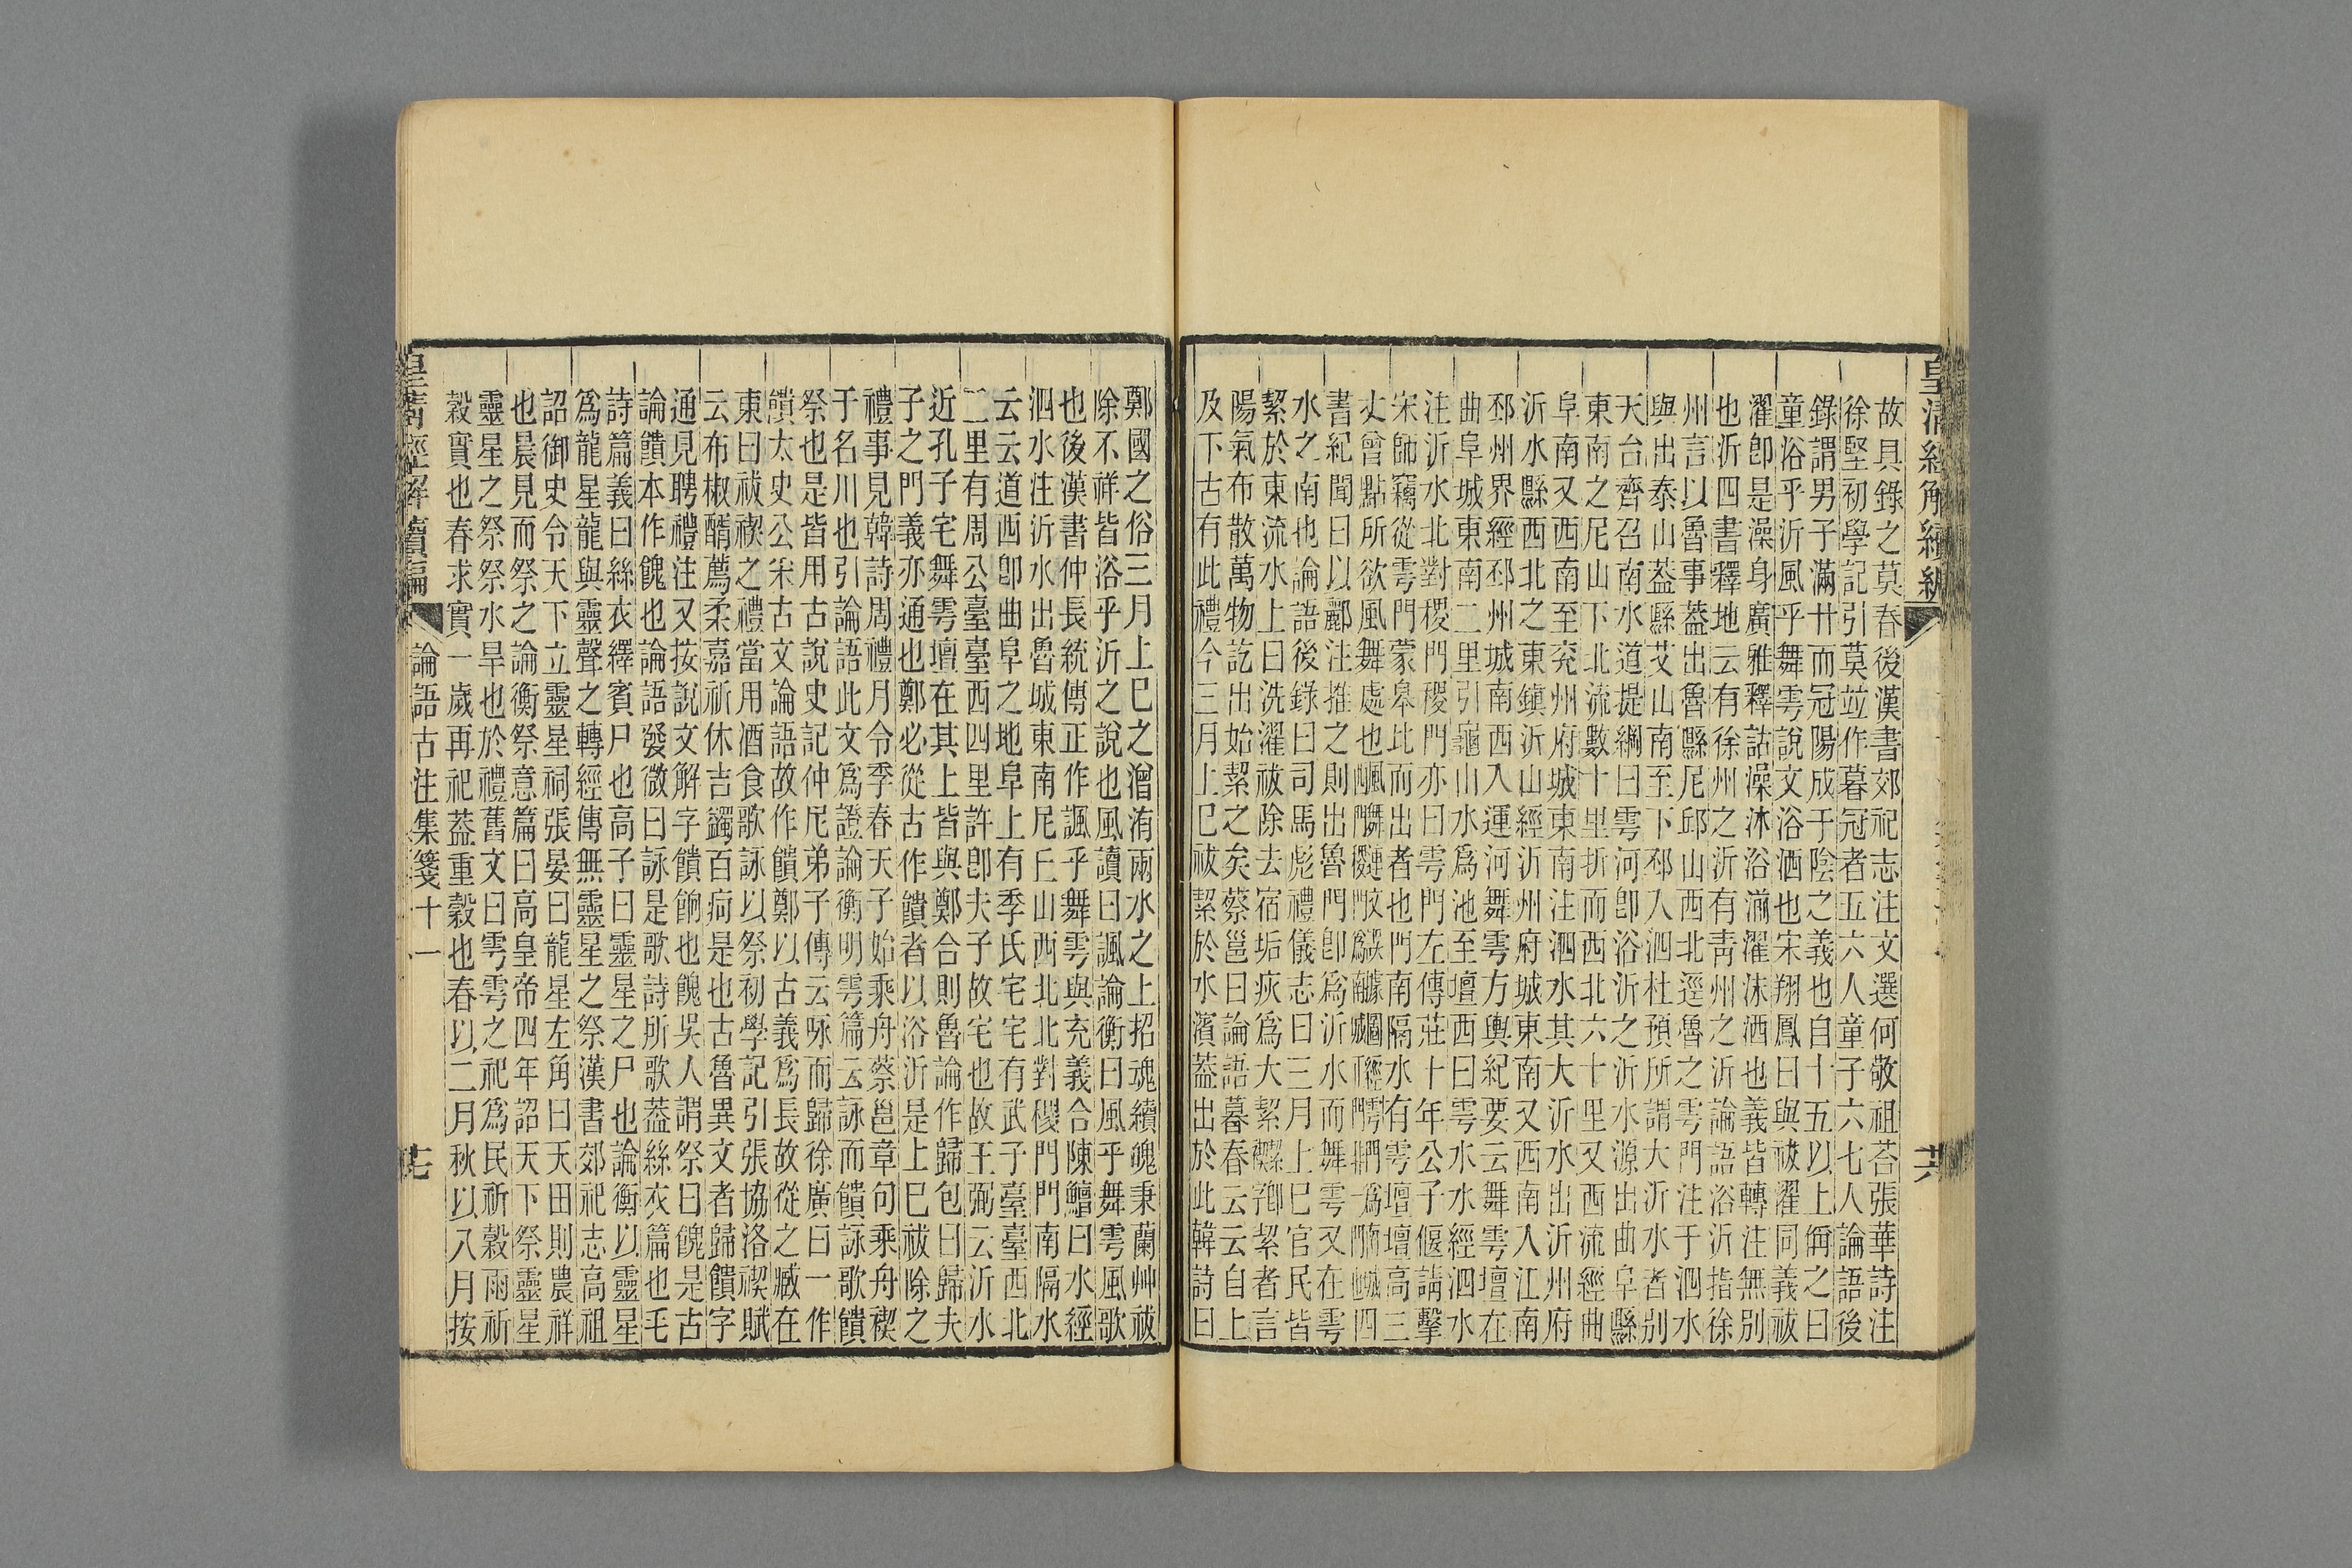 故具錄之莫春後漢書郊祀志注文選何敬祖荅張華詩注
徐堅初學記引莫並作暮冠者五六人童子六七人論語後
錄謂男子滿廿而冠陽成于陰之義也自十五以上稱之曰
童浴乎沂風乎舞雩說文浴洒也宋翔鳳曰與祓濯同義祓
濯卽是澡身廣雅釋詁澡沐浴湔濯沬洒也義皆轉注無別
也沂四書釋地云有徐州之沂有靑州之沂論語浴沂指徐
州言以魯事葢出魯縣尼邱山西北逕魯之雩門注于泗水
與出泰山葢縣艾山南至下邳入泗杜預所謂大沂水者别
天台齊召南水道提綱曰雩河卽浴沂之沂水源出曲阜縣
東南之尼山下北流數十里折而西北六十里又西流經曲
阜南又西南至兖州府城東南注泗水其大沂水出沂州府
沂水縣西北之東鎮沂山經沂州府城東南又西南入江南
邳州界經邳州城南西入運河舞雩方輿紀要云舞雩壇在
曲阜城東南二里引龜山水爲池至壇西曰雩水水經泗水
注沂水北對稷門稷門亦曰雩門左傳莊十年公子偃請擊
宋師竊從雩門蒙皋比而出者也門南隔水有雩壇壇高三
丈曾點所欲風舞處也
書紀聞曰以酈注推之則出魯門卽爲沂水而舞雩又在雩
水之南也論語後錄曰司馬彪禮儀志曰三月上巳官民皆
絜於東流水上曰洗濯祓除去宿垢疢爲大絜絜者言
陽氣布散萬物訖出始絜之矣蔡邕曰論語暮春云云自上
及下古有此禮今三月上巳祓絜於水濱葢出於此韓詩曰
皇清經解續編
鄭國之俗三月上巳之溱洧兩水之上招魂續魄秉蘭艸祓
除不祥皆浴乎沂之說也風讀曰諷論衡曰風乎舞雩風歌
也後漢書仲長統傳正作諷乎舞雩與充義合陳鱣曰水經
泗水注沂水出魯城東南尼丘山西北北對稷門門南隔水
云云道西卽曲阜之地阜上有季氏宅宅有武子臺臺西北
二里有周公臺臺西四里許卽夫子故宅也故王弼云沂水
近孔子宅舞雩壇在其上皆與鄭合則魯論作歸包曰歸夫
子之門義亦通也鄭必從古作饋者以浴沂是上巳祓除之
禮事見韓詩周禮月令季春天子始乘舟蔡邕章句乘舟禊
于名川也引論語此文爲證論衡明雩篇云詠而饋詠歌饋
祭也是皆用古說史記仲尼弟子傳云咏而歸徐廣曰一作
饋太史公宋古文論語故作饋鄭以古義爲長故從之臧在
東曰祓禊之禮當用酒食歌詠以祭初學記引張協洛禊賦
云布椒醑薦柔嘉祈休吉蠲百疴是也古魯異文者歸饋字
通見聘禮注又按說文解字饋餉也餽吳人謂祭曰餽是古
論饋本作餽也論語發微曰詠是歌詩所歌葢絲衣篇也毛
詩篇義曰絲衣繹賓尸也高子曰靈星之尸也論衡以靈星
爲龍星龍與靈聲之轉經傳無靈星之祭漢書郊祀志高祖
詔御史令天下立靈星祠張晏曰龍星左角曰天田則農祥
也晨見而祭之論衡祭意篇曰高皇帝四年詔天下祭靈星
靈星之祭祭水旱也於禮舊文曰雩雩之祀爲民祈穀雨祈
穀實也春求實一歲再祀葢重穀也春以二月秋以八月按
皇清經解續編 論語古注集箋十一